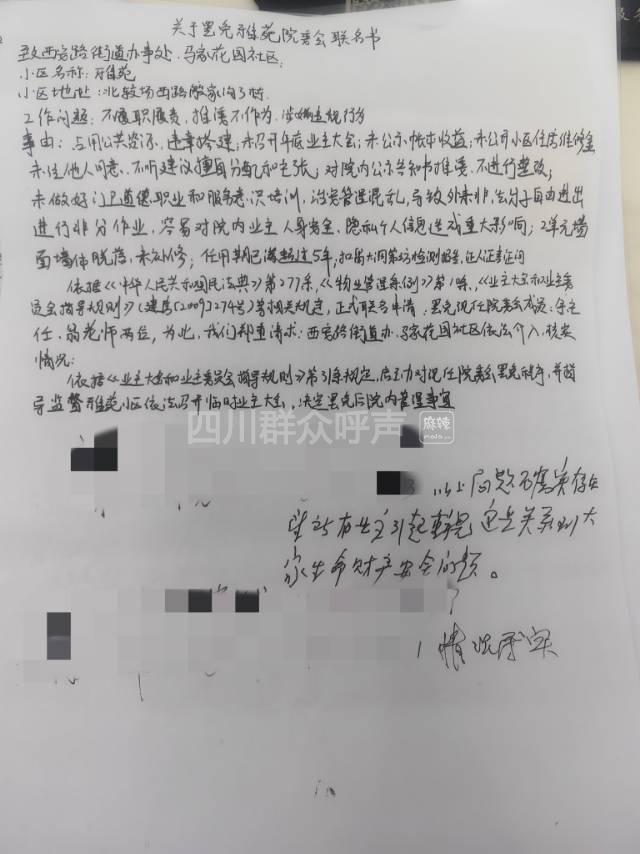 关于罢免雅苑院委会联名书
致西安路街道办事处、马家花园社区:
小区名称:雅苑
小区地址:北较场西路
工作问题:不履职履责,推诿不作为,涉嫌违规行为
事由:占用公共资源,违章搭建;未召开年底业主大会;未公示帐本收益;未公开小区住房维修金
未经他人同意、不听建议擅自分配和主张;对院内公示告知书推诿、不进行整改;
未做好门卫道德、职业和服务意识培训,治安管理混乱,导致外来非法分子自由进出
进行非分作业,容易对院内业主人身安全,隐私个人信息造成重大影响;2单元墙
面墙体脱落,未维修;任用期已满超过5年,
依据《中华人民共和国民法典》第277条,《物业管理条例》第1条,《业主大会和业主委
员会指导规则》(建房[2009]274号)等相关规定,正式联名申请:罢免现任院委会成员:余主
任、翁老师两位,为此,我们郑重请求:西安路街道办、马家花园社区依法介入,核实
情况;
依据《业主大会和业主委员会指导规则》第31条规定,启动对现任院委会罢免程序,并指
导监督雅苑小区依法召开临时业主大会,决定罢免后院内管理事宜
四川群众呼声
麻辣
mala.cn
以上问题确实存在
望所有业主引起重视 这是关系到大
家生命财产安全问题。
情况属实